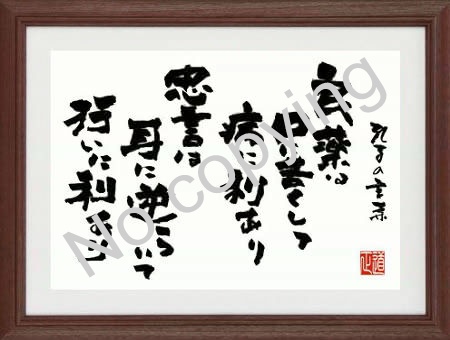 孔子の言葉
良薬は
口に苦くして
病に利あり
忠言は
耳に逆らいて
行いに利あり
No copying